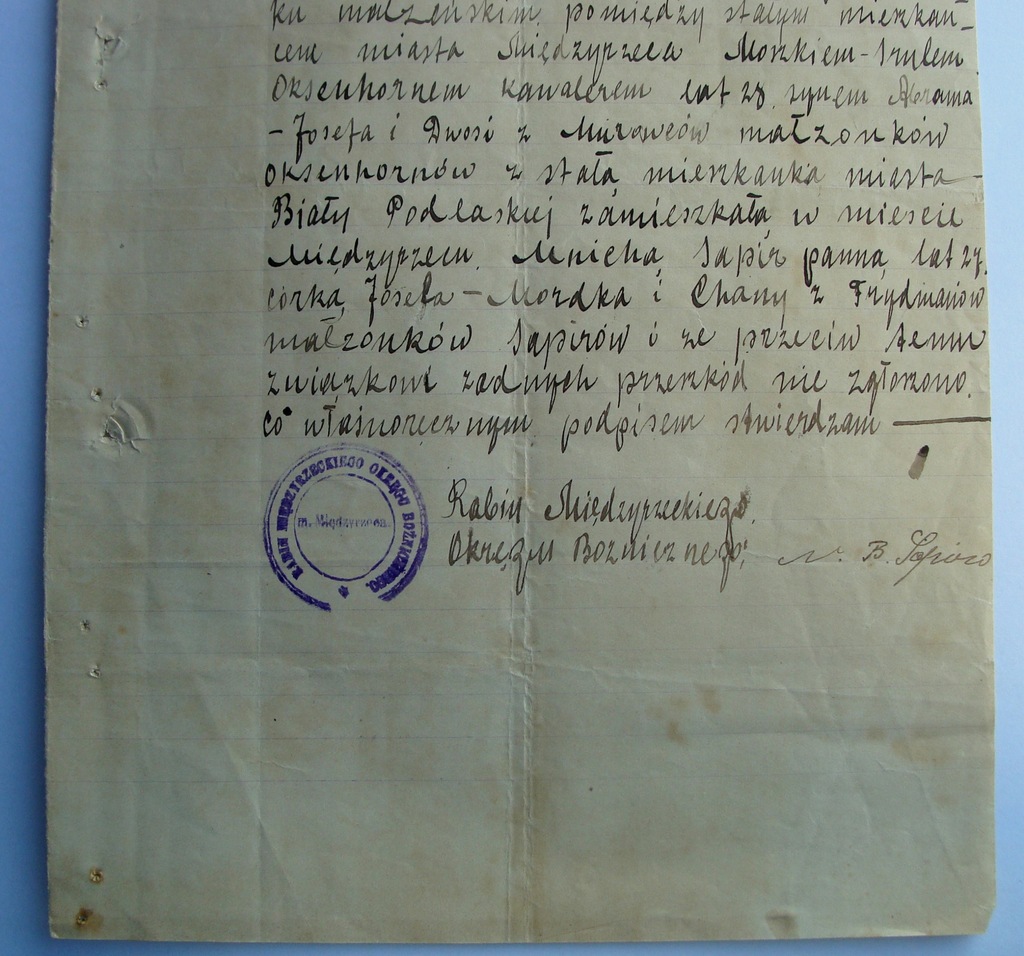 ku małżeńskim pomiędzy stałym mieszkań-
cem miasta Międzyrzeca Moszkiem-Srulem
Oksenhornem kawalerem lat 28, synem Abrama
-Josefa i Dwosi z Murawców małzonków
Oksenhornów z stałą mieszkanką miasta
Biały Podlaskiej zamieszkałą w mieście
Międzyrzecu, Mnichą Sapir panną lat 27,
córką Josefa-Mordka i Chany z Frydmanów
małzonków Sapirów i ze przeciw temu
związkowi zadnych przeszkód nie zgłoszono.
Co własnoręcznym podpisem stwierdzam
RABIN MIĘDZYRZECKIEGO OKRĘGO BOŻNICZNEGO.
m. Międzyrzeca.
Rabin Międzyrzeckiego
Okręgu Bozniczego: N. B. Sapiro